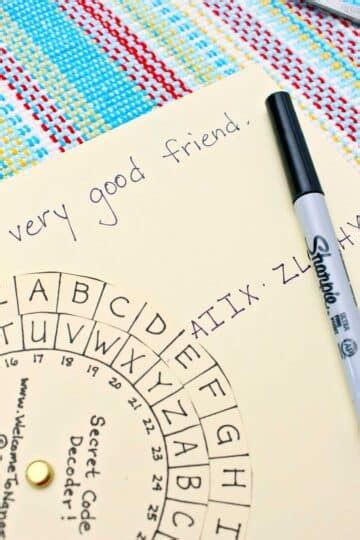 very good friend.
AIIX. ZL HY
Sharpie
A B C D E F G H I
T U V W X Y Z A B C
16 17 18 19 20 21 22 23 24 25
Secret Code
Decoder!